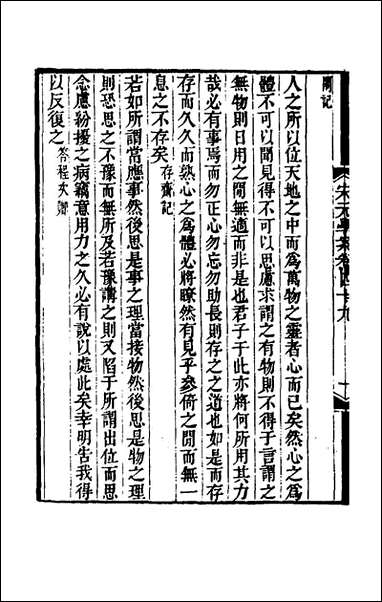 宋元學案卷四十九
閣記
人之所以位天地之中而爲萬物之靈者心而已矣然心之爲
體不可以聞見得不可以思慮求謂之有物則不得于言謂之
無物則日用之間無適而非是也君子于此亦將何所用其力
哉必有事焉而勿正心勿忘勿助長則存之之道也如是而存
存而久久而熟心之爲體必將瞭然有見乎參倚之間而無一
息之不存矣 存齋記
若如所謂當應事然後思是事之理當接物然後思是物之理
則恐思之不豫而無所及若豫講之則又陷于所謂出位而思
念慮紛擾之病竊意用力之久必有說以處此矣幸明告我得
以反復之 答程次卿